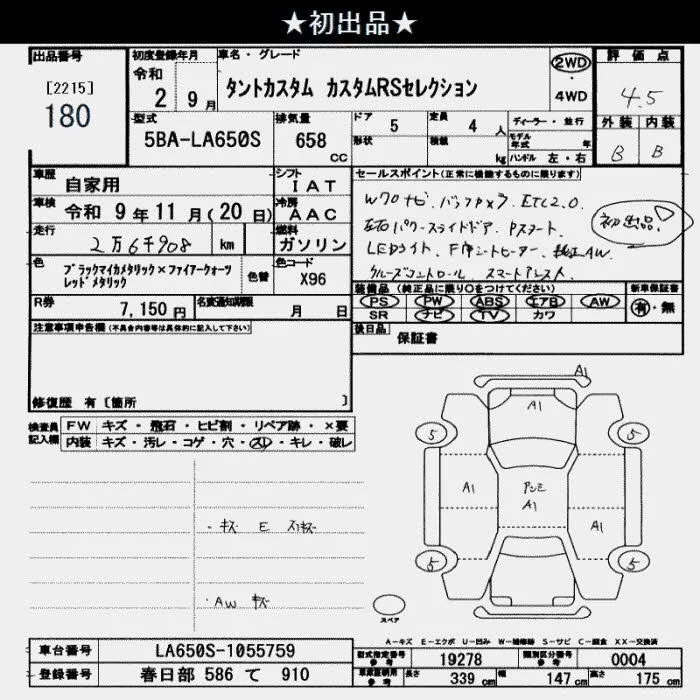 ★初出品★
出品番号 初度登録年月 車名・グレード 評価点
[2215] 令和 2WD
180 2 9月 タントカスタム カスタムRSセレクション 4WD 4.5
型式 排気量 ドア 5 定員 4人 ディーラー・並行 外装 内装
5BA-LA650S 658 cc 形状 積載 kg モデル年式 年 ハンドル 左・右 B B
車歴 自家用 シフト IAT セールスポイント(正常に機能するものに限ります)
車検 令和 9年 11月(20日) 冷房 AAC Wフロナビ バックカメラ ETC2.0
走行 2万6千908 km 燃料 ガソリン 左右パワースライドドア Pスタート 初出品
LEDライト F席シートヒーター 純正AW
色 ブラックマイカメタリック×ファイアークォーツ 色替 色コード X96
レッドメタリック クルーズコントロール スマートアシスト
装備品(純正品に限り○をつけてください) 新車保証書
R券 7,150円 名変通知期限 月 日 PS PW ABS エアB AW 有・無
SR ナビ TV カワ
注意事項申告欄(不具合内容等は具体的に記入して下さい) 後日品 保証書
修復歴 有〔箇所 〕
検査員 FW キズ・飛石・ヒビ割・リペア跡・×要
記入欄 内装 キズ・汚レ・コゲ・穴・スレ・キレ・破レ
A1
A1
5 5
A1 アンミ A1
A1
・キズ E スリキズ
5 5
・AW キズ
スペア
A-キズ E-エクボ U-凹み W-補修跡 S-サビ C-腐食 XX-交換済
車台番号 LA650S-1055759 型式指定番号 参考 19278 類別区分番号 参考 0004
登録番号 春日部 586 て 910 車庫証明用 参考 長さ 339cm 幅 147cm 高さ 175cm